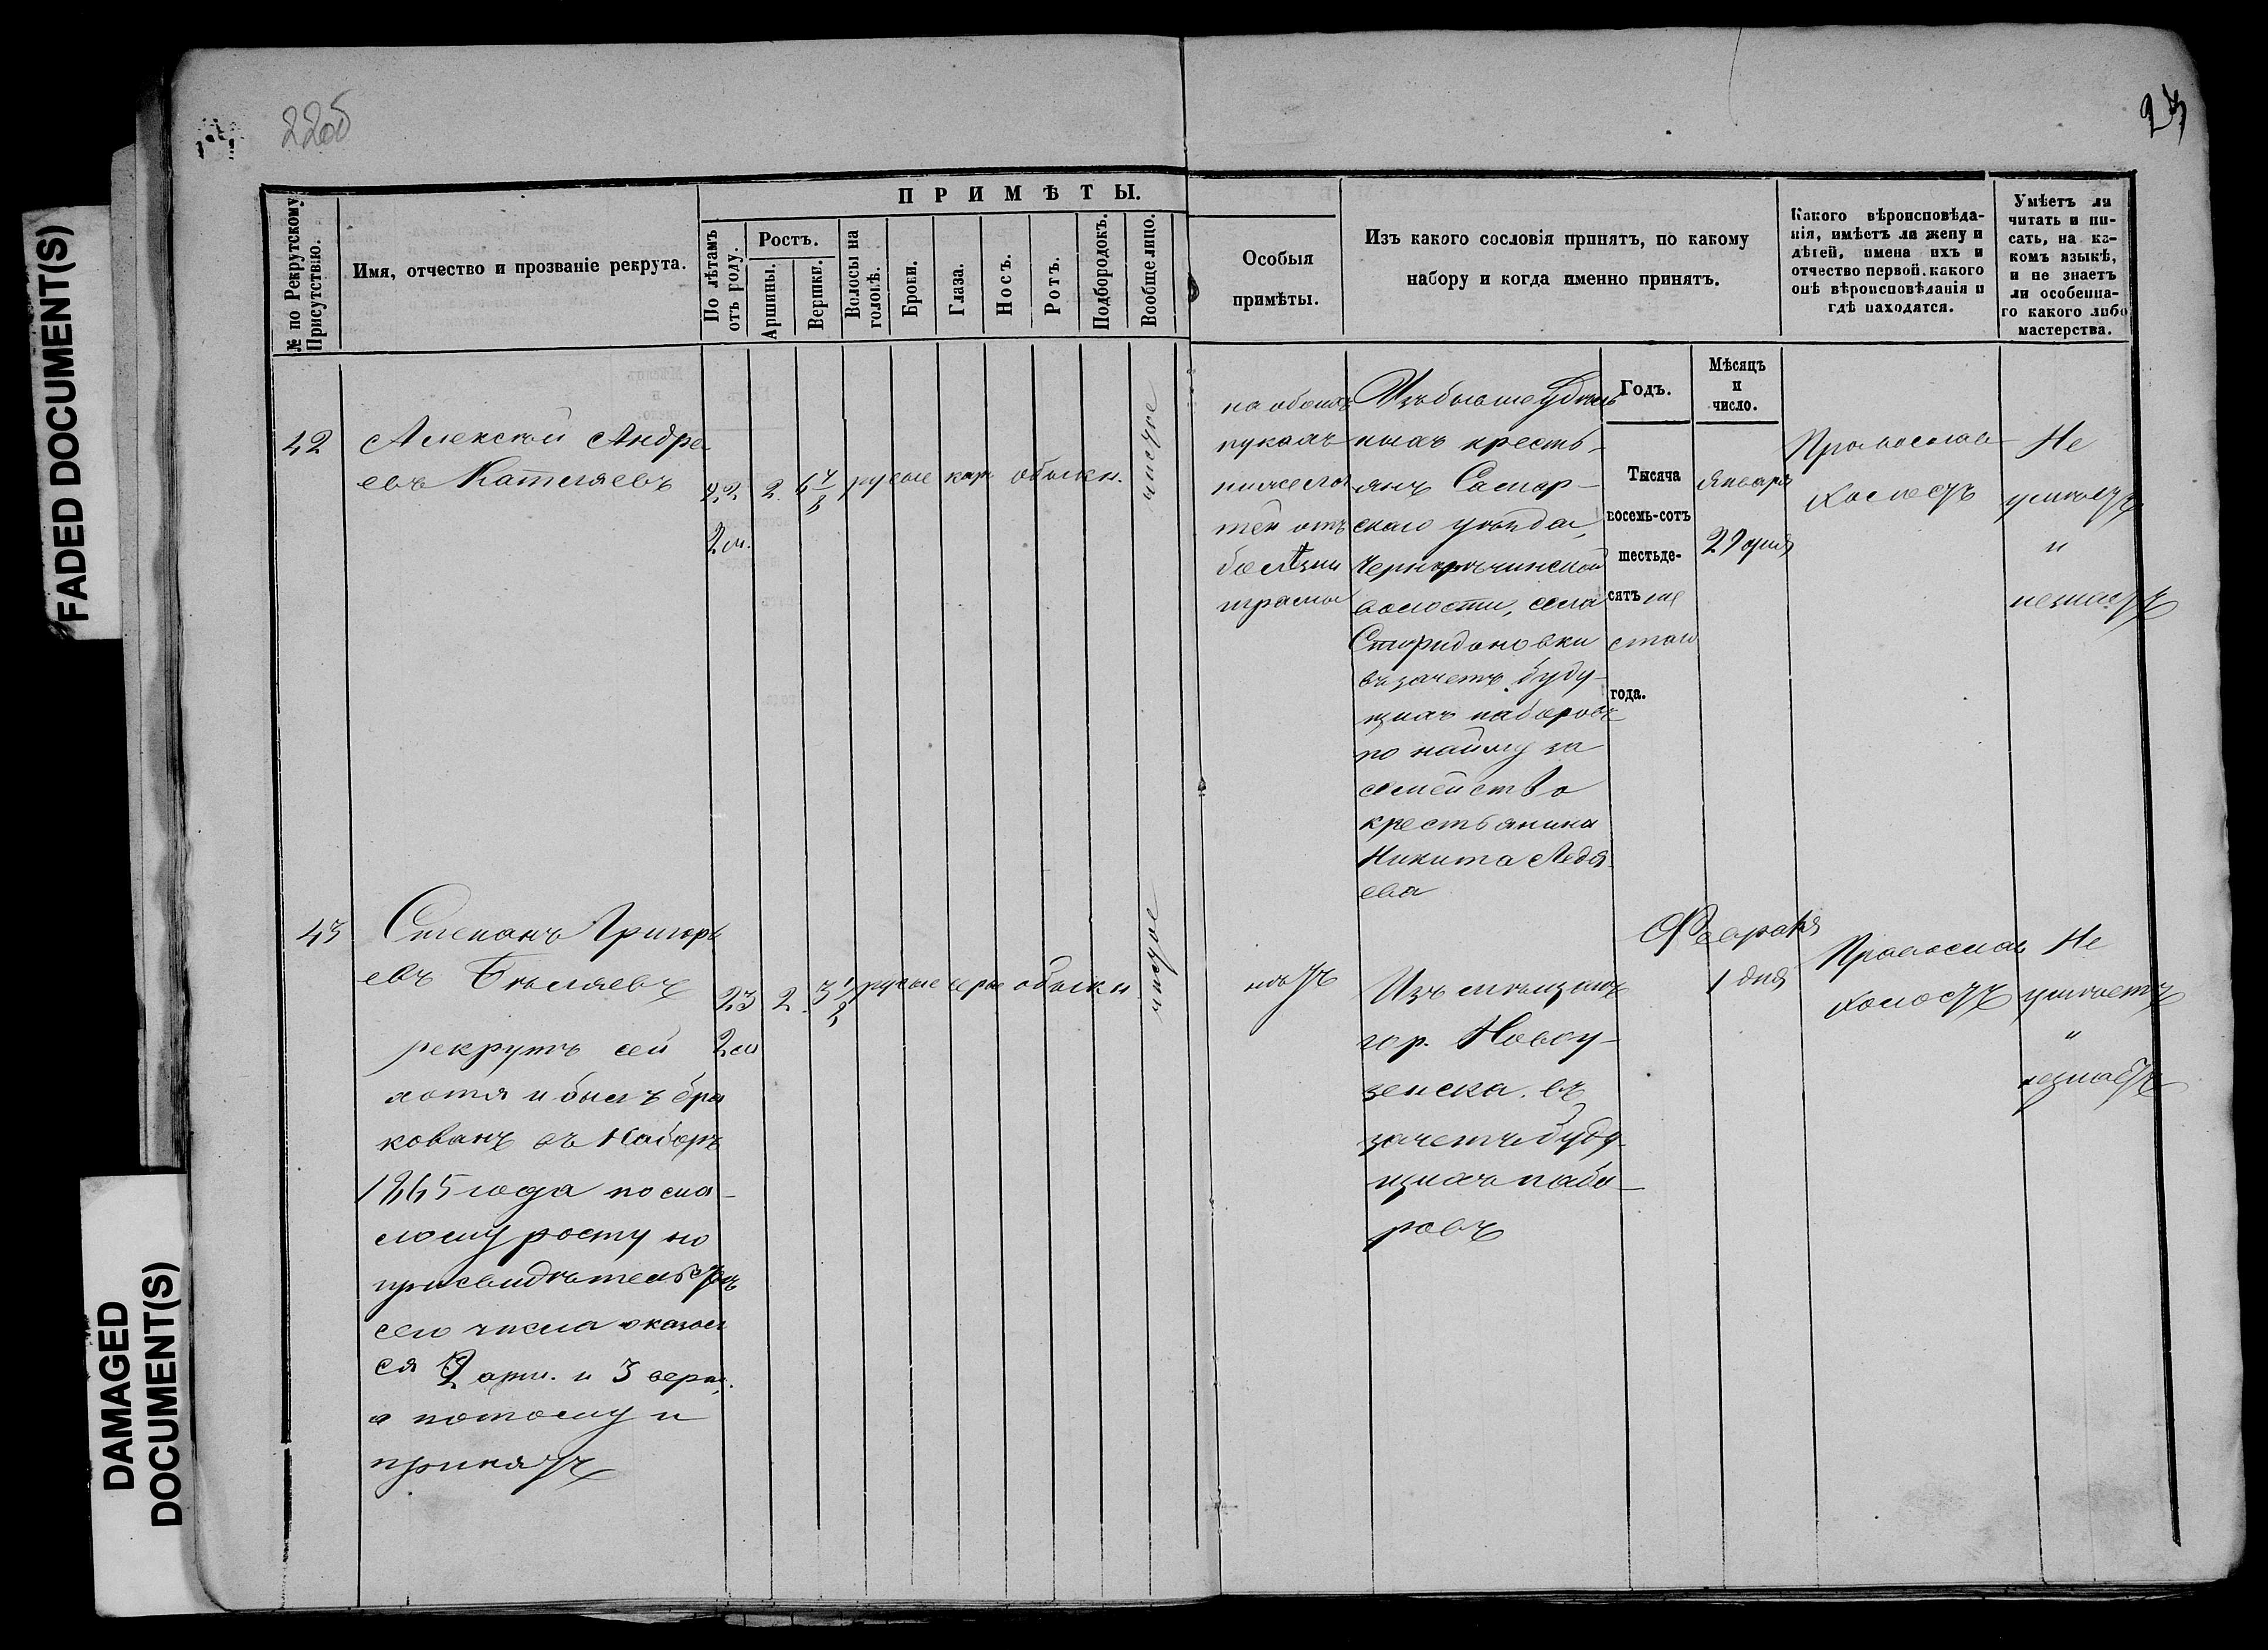 FADED DOCUMENT(S)
DAMAGED
DOCUMENT(S)
22об
23
№ по Рекрутскому
Присутствію.
Имя, отчество и прозваніе рекрута.
ПРИМѢТЫ.
По лѣтамъ
отъ роду.
Ростъ.
Аршины.
Вершки.
Волосы на
головѣ.
Брови.
Глаза.
Носъ.
Ротъ.
Подбородокъ.
Вообще лицо.
Особыя
примѣты.
Изъ какого сословія принятъ, по какому
набору и когда именно принятъ.
Какого вѣроисповѣда-
нія, имѣетъ ли жену и
дѣтей, имена ихъ и
отчество первой, какого
онѣ вѣроисповѣданія и
гдѣ находятся.
Умѣетъ ли
читать и пи-
сать, на ка-
комъ языкѣ,
и не знаетъ
ли особенна-
го какого либо
мастерства.
42
Алексѣй Андре
евъ Кателяевъ
22
2 м.
2
русые
кар
обыкн.
чистое
на обоихъ
рукахъ
отъ
болѣзни
Изъ бывше удѣль
ныхъ кресть-
янъ Самар-
скаго уѣзда,
Чернорѣчинской
волости, села
Спиридоновки
въ зачетъ буду-
щихъ наборовъ
по найму за
семейство
крестьянина
Никита Ледя-
ева
Годъ.
Тысяча
восемь-сотъ
шестьде-
сятъ ше
стаго
года.
Мѣсяцъ
и
число.
Января
29 дня
Православ
холостъ
Не
умѣетъ
и
незнаетъ
43
Степанъ Григорь
евъ Бѣляевъ
рекрутъ сей
хотя и былъ бра
кованъ въ наборъ
1865 года по ма-
лому росту но
при свидѣтельств
сего числа оказал
ся 2 арш. и 3 верш.
а потому и
принятъ
23
2 м
2
3 1/2
русые
серые
обыкн
чистое
нѣтъ
Изъ мѣщанъ
гор. Новоу-
зенска. въ
зачетъ буду-
щихъ набо-
ровъ
Февраля
1 дня
Православ
холостъ
Не
умѣетъ
и
незнаетъ